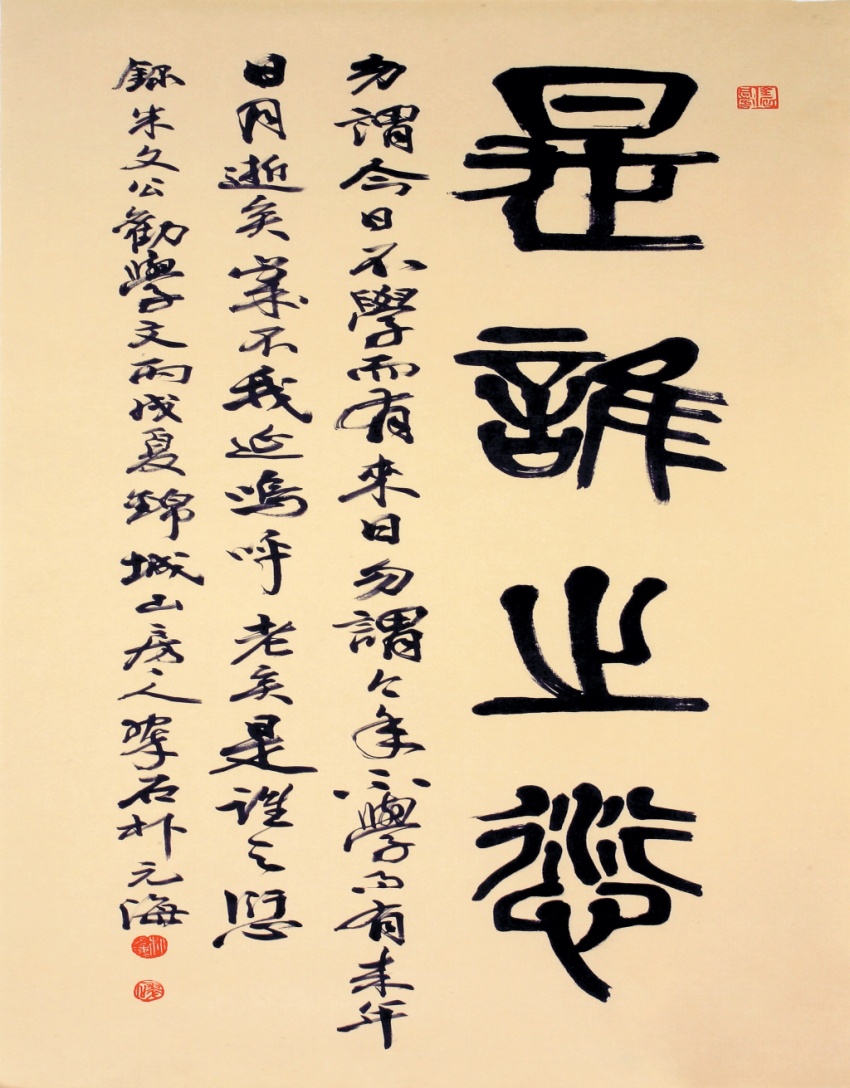 是誰之愆
勿謂今日不學而有來日勿謂今年不學而有来年
日月逝矣歲不我延嗚呼老矣是誰之愆
錄朱文公勸學文丙戌夏錦城山房之人石朴元海